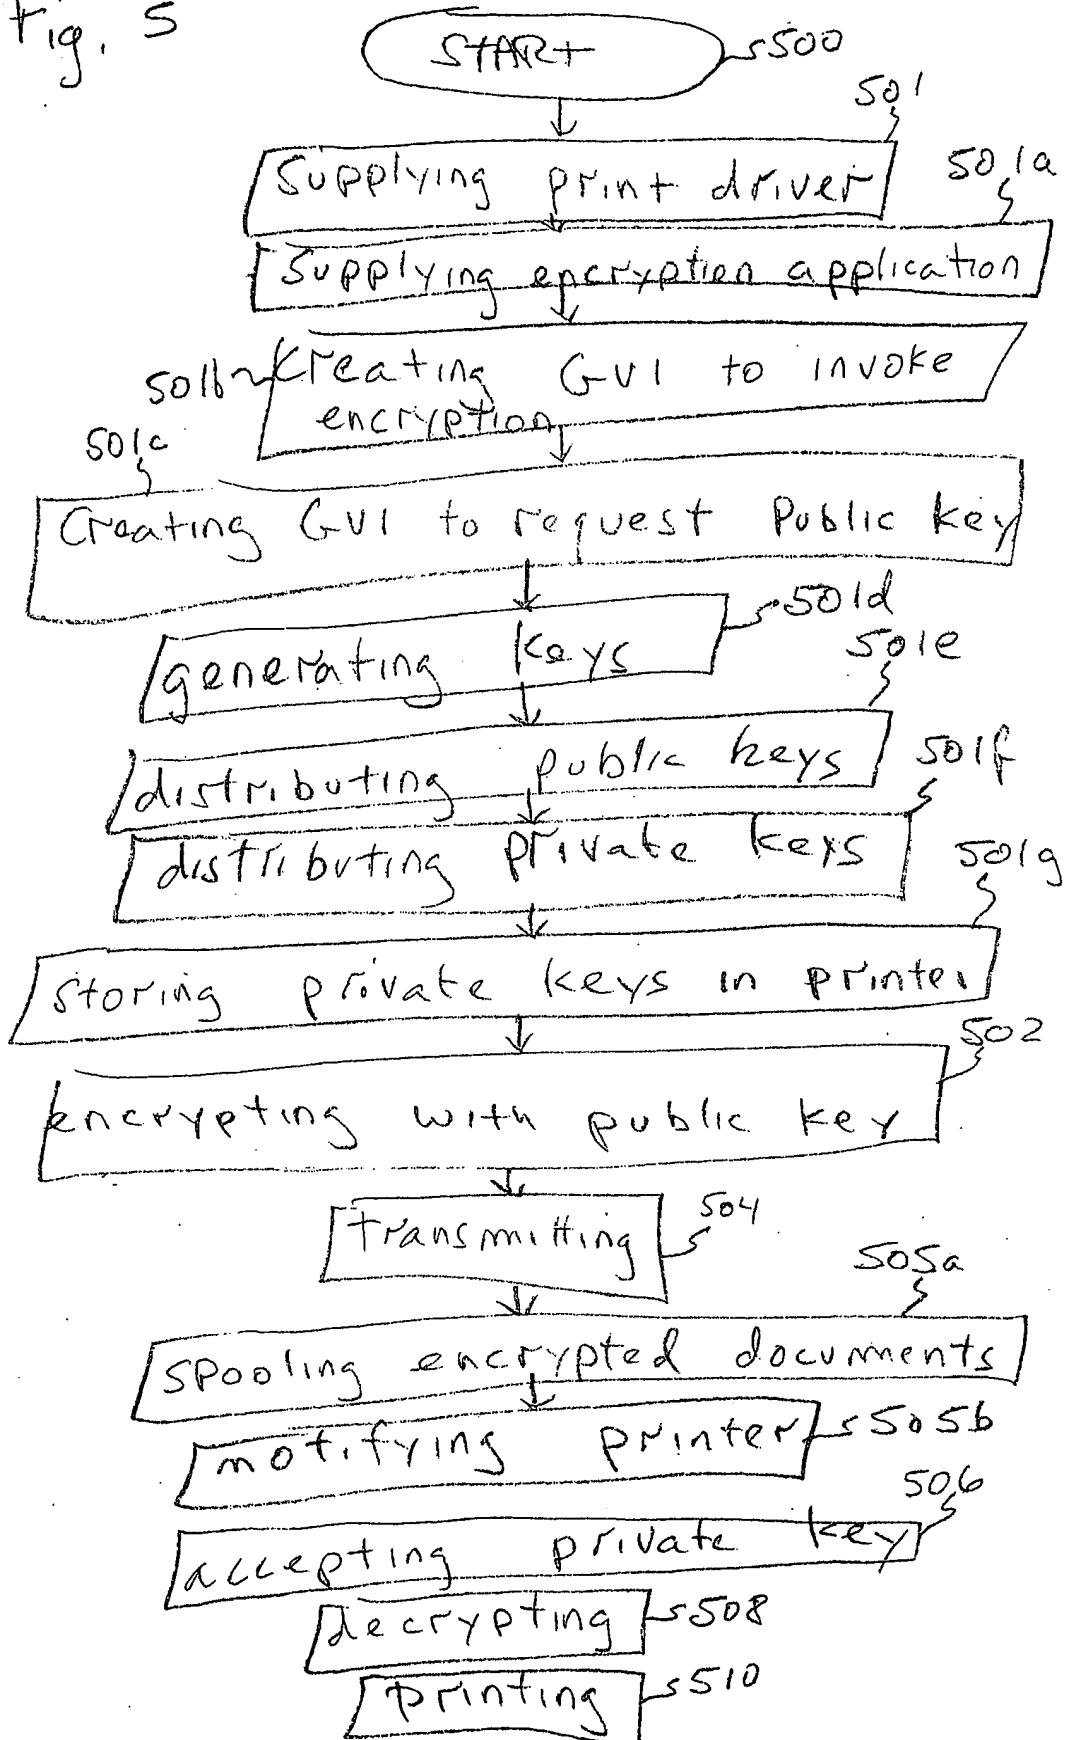 Fig. 5
START
500
501
Supplying print driver
501a
Supplying encryption application
501b
Creating GUI to invoke
encryption
501c
Creating GUI to request Public key
501d
generating keys
501e
distributing public keys
501f
distributing private keys
501g
storing private keys in printer
502
encrypting with public key
504
transmitting
505a
spooling encrypted documents
notifying printer
505b
506
accepting private key
decrypting
508
printing
510